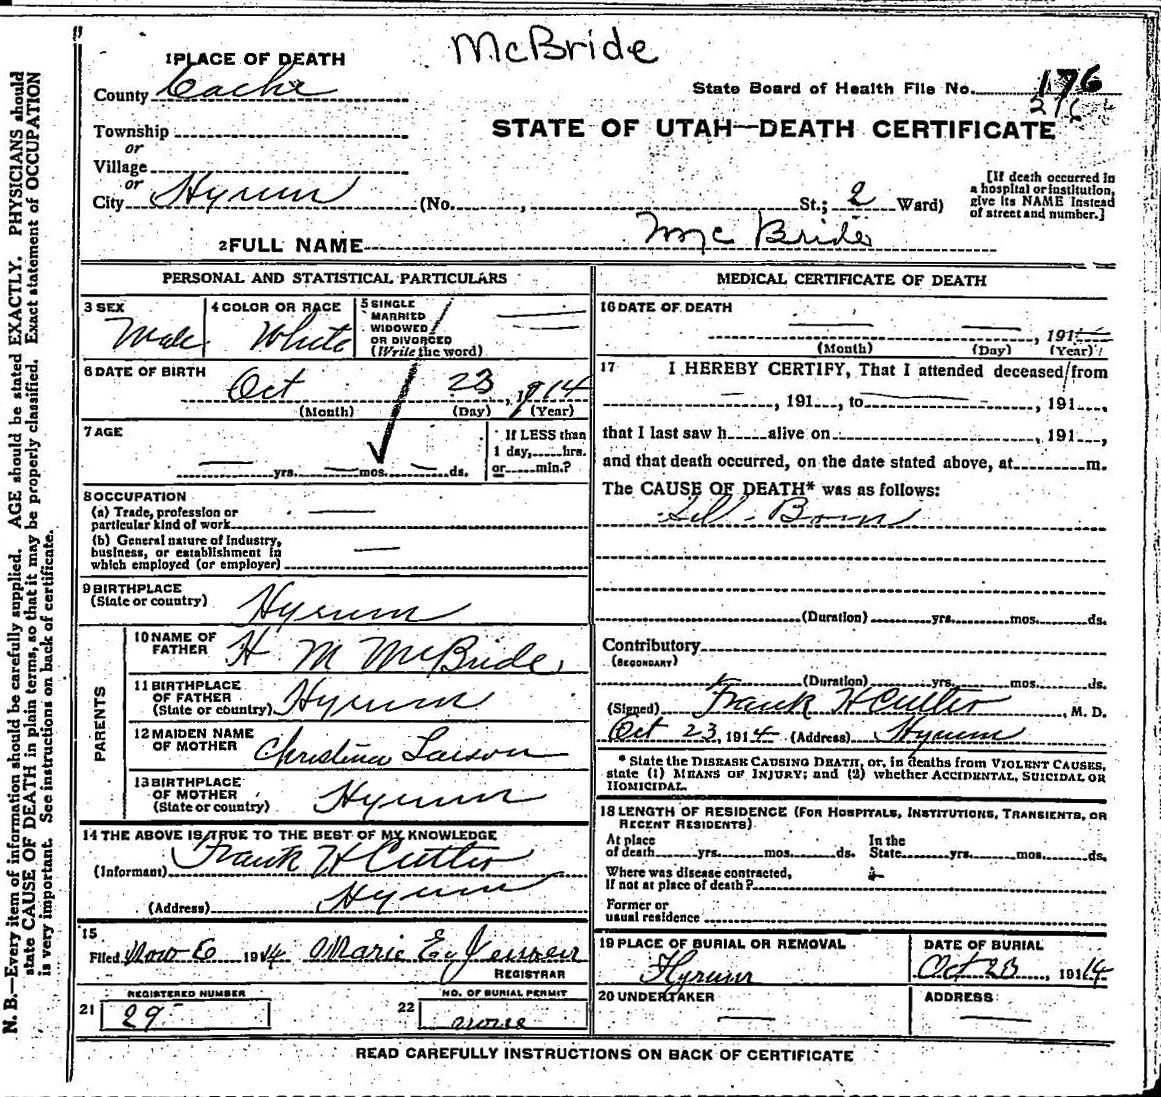 McBride
1 PLACE OF DEATH
County Cache
State Board of Health File No. 176
216
Township
or
Village
or
City Hyrum (No. , St.; 2 Ward)
STATE OF UTAH—DEATH CERTIFICATE
[If death occurred in
a hospital or institution,
give its NAME instead
of street and number.]
2 FULL NAME McBride
PERSONAL AND STATISTICAL PARTICULARS
3 SEX
Male
4 COLOR OR RACE
White
5 SINGLE
MARRIED
WIDOWED
OR DIVORCED
(Write the word)
6 DATE OF BIRTH
Oct 23, 1914
(Month) (Day) (Year)
7 AGE
yrs. mos. ds.
If LESS than
1 day, hrs.
or min.?
8 OCCUPATION
(a) Trade, profession or
particular kind of work
(b) General nature of industry,
business, or establishment in
which employed (or employer)
9 BIRTHPLACE
(State or country) Hyrum
PARENTS
10 NAME OF
FATHER H M McBride
11 BIRTHPLACE
OF FATHER
(State or country) Hyrum
12 MAIDEN NAME
OF MOTHER Christina Larson
13 BIRTHPLACE
OF MOTHER
(State or country) Hyrum
14 THE ABOVE IS TRUE TO THE BEST OF MY KNOWLEDGE
(Informant) Frank H Cutler
(Address) Hyrum
15
Filed Nov 6 1914 Marie E
REGISTRAR
REGISTERED NUMBER
21 29
NO. OF BURIAL PERMIT
22 none
MEDICAL CERTIFICATE OF DEATH
16 DATE OF DEATH
, 191
(Month) (Day) (Year)
17 I HEREBY CERTIFY, That I attended deceased from
, 191 , to , 191 ,
that I last saw h alive on , 191 ,
and that death occurred, on the date stated above, at m.
The CAUSE OF DEATH* was as follows:
Still Born
(Duration) yrs. mos. ds.
Contributory
(SECONDARY)
(Duration) yrs. mos. ds.
(Signed) Frank H Cutler, M. D.
Oct 23, 1914 (Address) Hyrum
* State the DISEASE CAUSING DEATH, or, in deaths from VIOLENT CAUSES,
state (1) MEANS OF INJURY; and (2) whether ACCIDENTAL, SUICIDAL OR
HOMICIDAL.
18 LENGTH OF RESIDENCE (FOR HOSPITALS, INSTITUTIONS, TRANSIENTS, OR
RECENT RESIDENTS)
At place
of death yrs. mos. ds.
In the
State yrs. mos. ds.
Where was disease contracted,
if not at place of death?
Former or
usual residence
19 PLACE OF BURIAL OR REMOVAL
Hyrum
DATE OF BURIAL
Oct 23, 1914
20 UNDERTAKER
ADDRESS
READ CAREFULLY INSTRUCTIONS ON BACK OF CERTIFICATE
N. B.—Every item of information should be carefully supplied. AGE should be stated EXACTLY. PHYSICIANS should
state CAUSE OF DEATH in plain terms, so that it may be properly classified. Exact statement of OCCUPATION
is very important. See instructions on back of certificate.